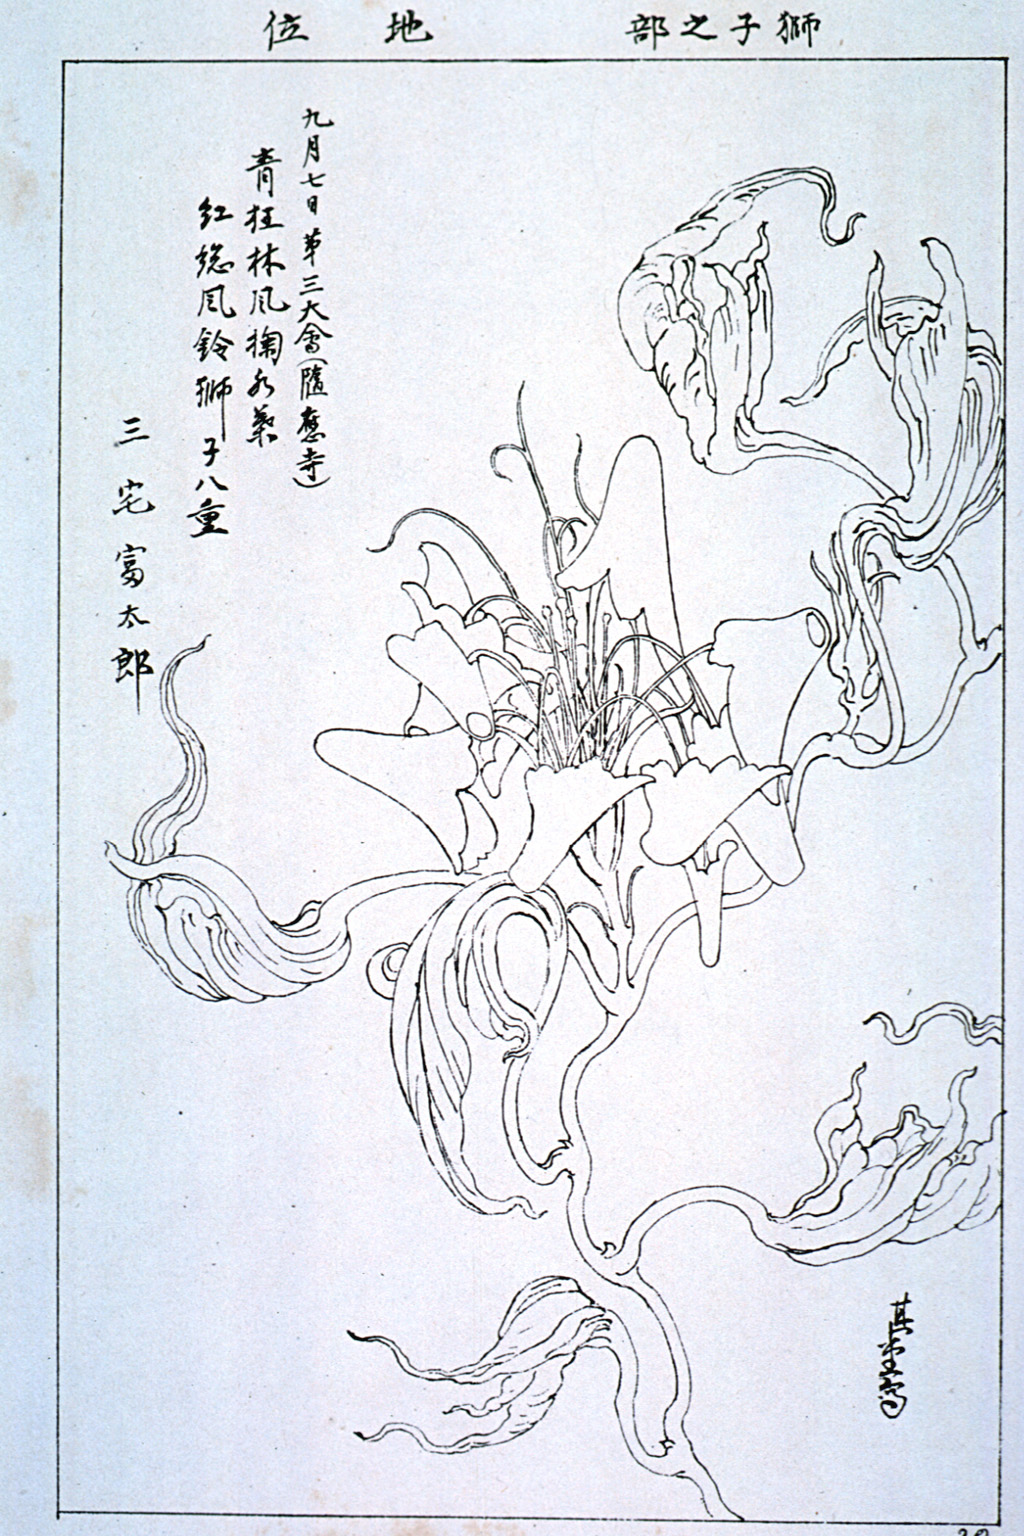 獅子之部
地位
九月七日第三大會(隨應寺)
青狂林風掬水葉
紅總風鈴獅子八重
三宅富太郎
其堂寫